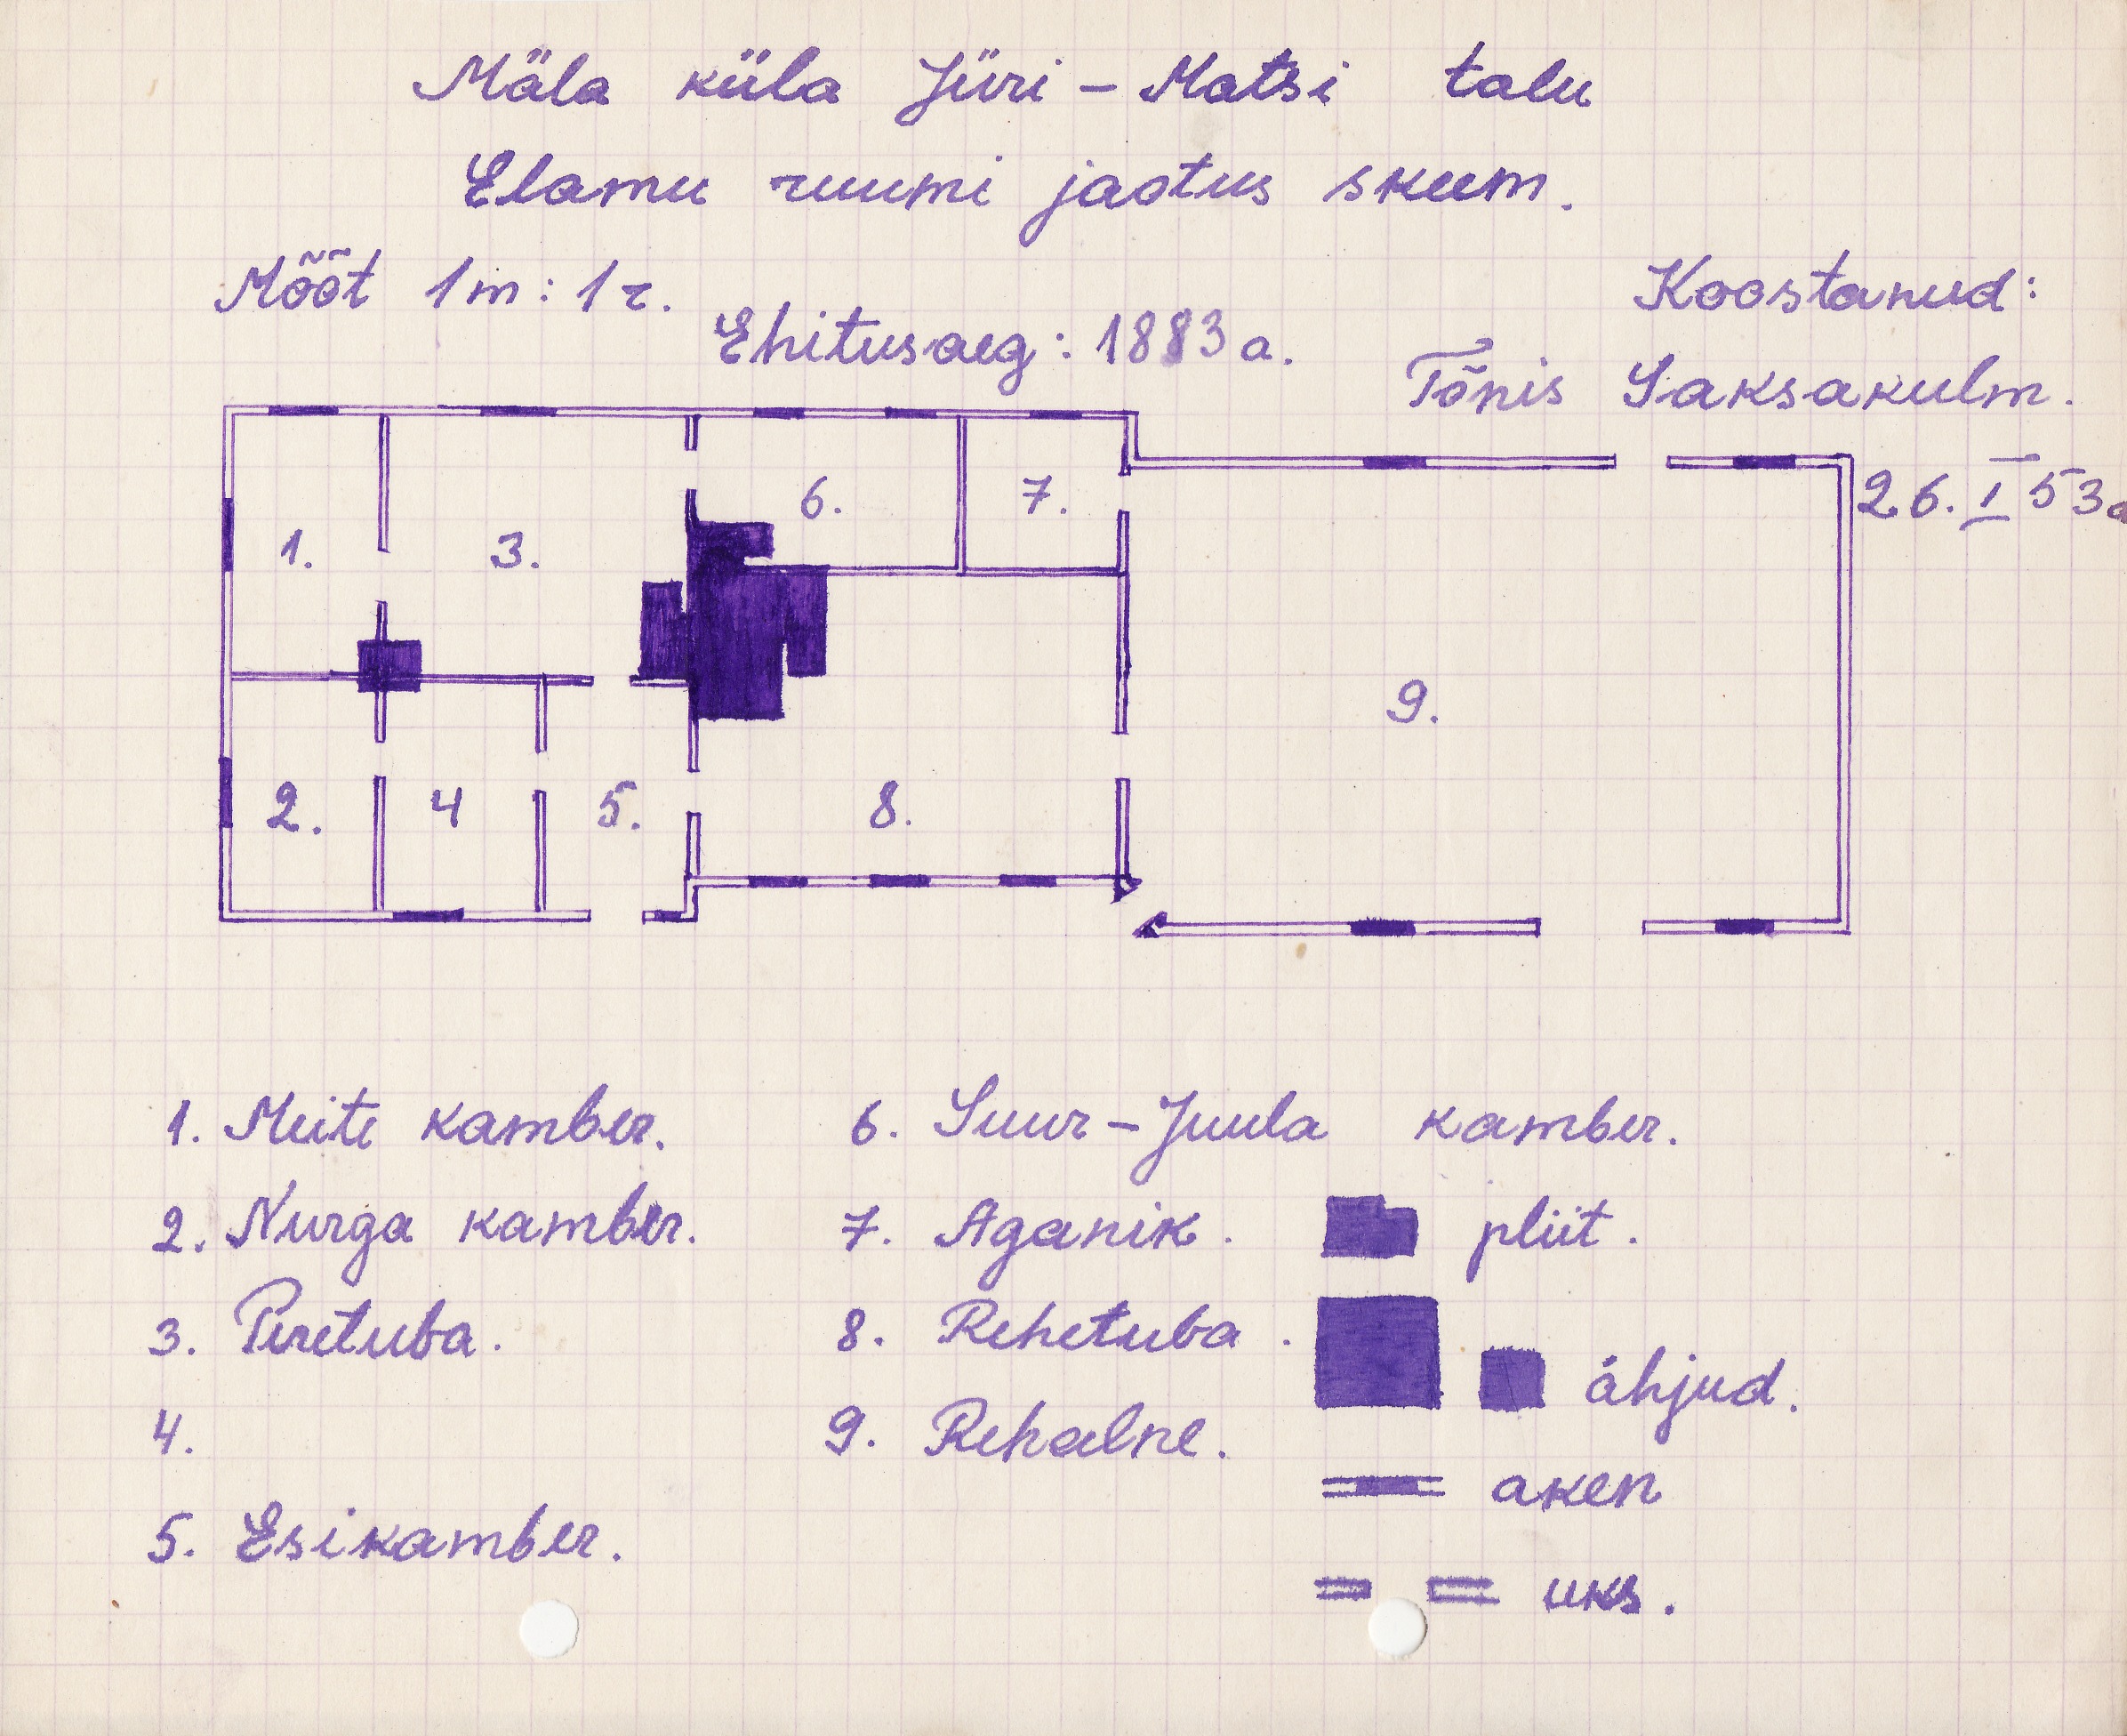 Mäla küla Jüri - Matsi talu
Elamu ruumi jaotus skeem.
Mõõt 1m : 1r.
Koostanud:
Ehitusaeg: 1883 a.
Tõnis Saksakulm.
26. I 53a
1.
3.
6.
7.
9.
2.
4
5.
8.
1. Meite kamber.
2. Nurga kamber.
3. Peretuba.
4.
5. Esikamber.
6. Suur-Juula kamber.
7. Aganik.
8. Rehetuba.
9. Rehalne.
pliit.
ähjud.
aken
uks.